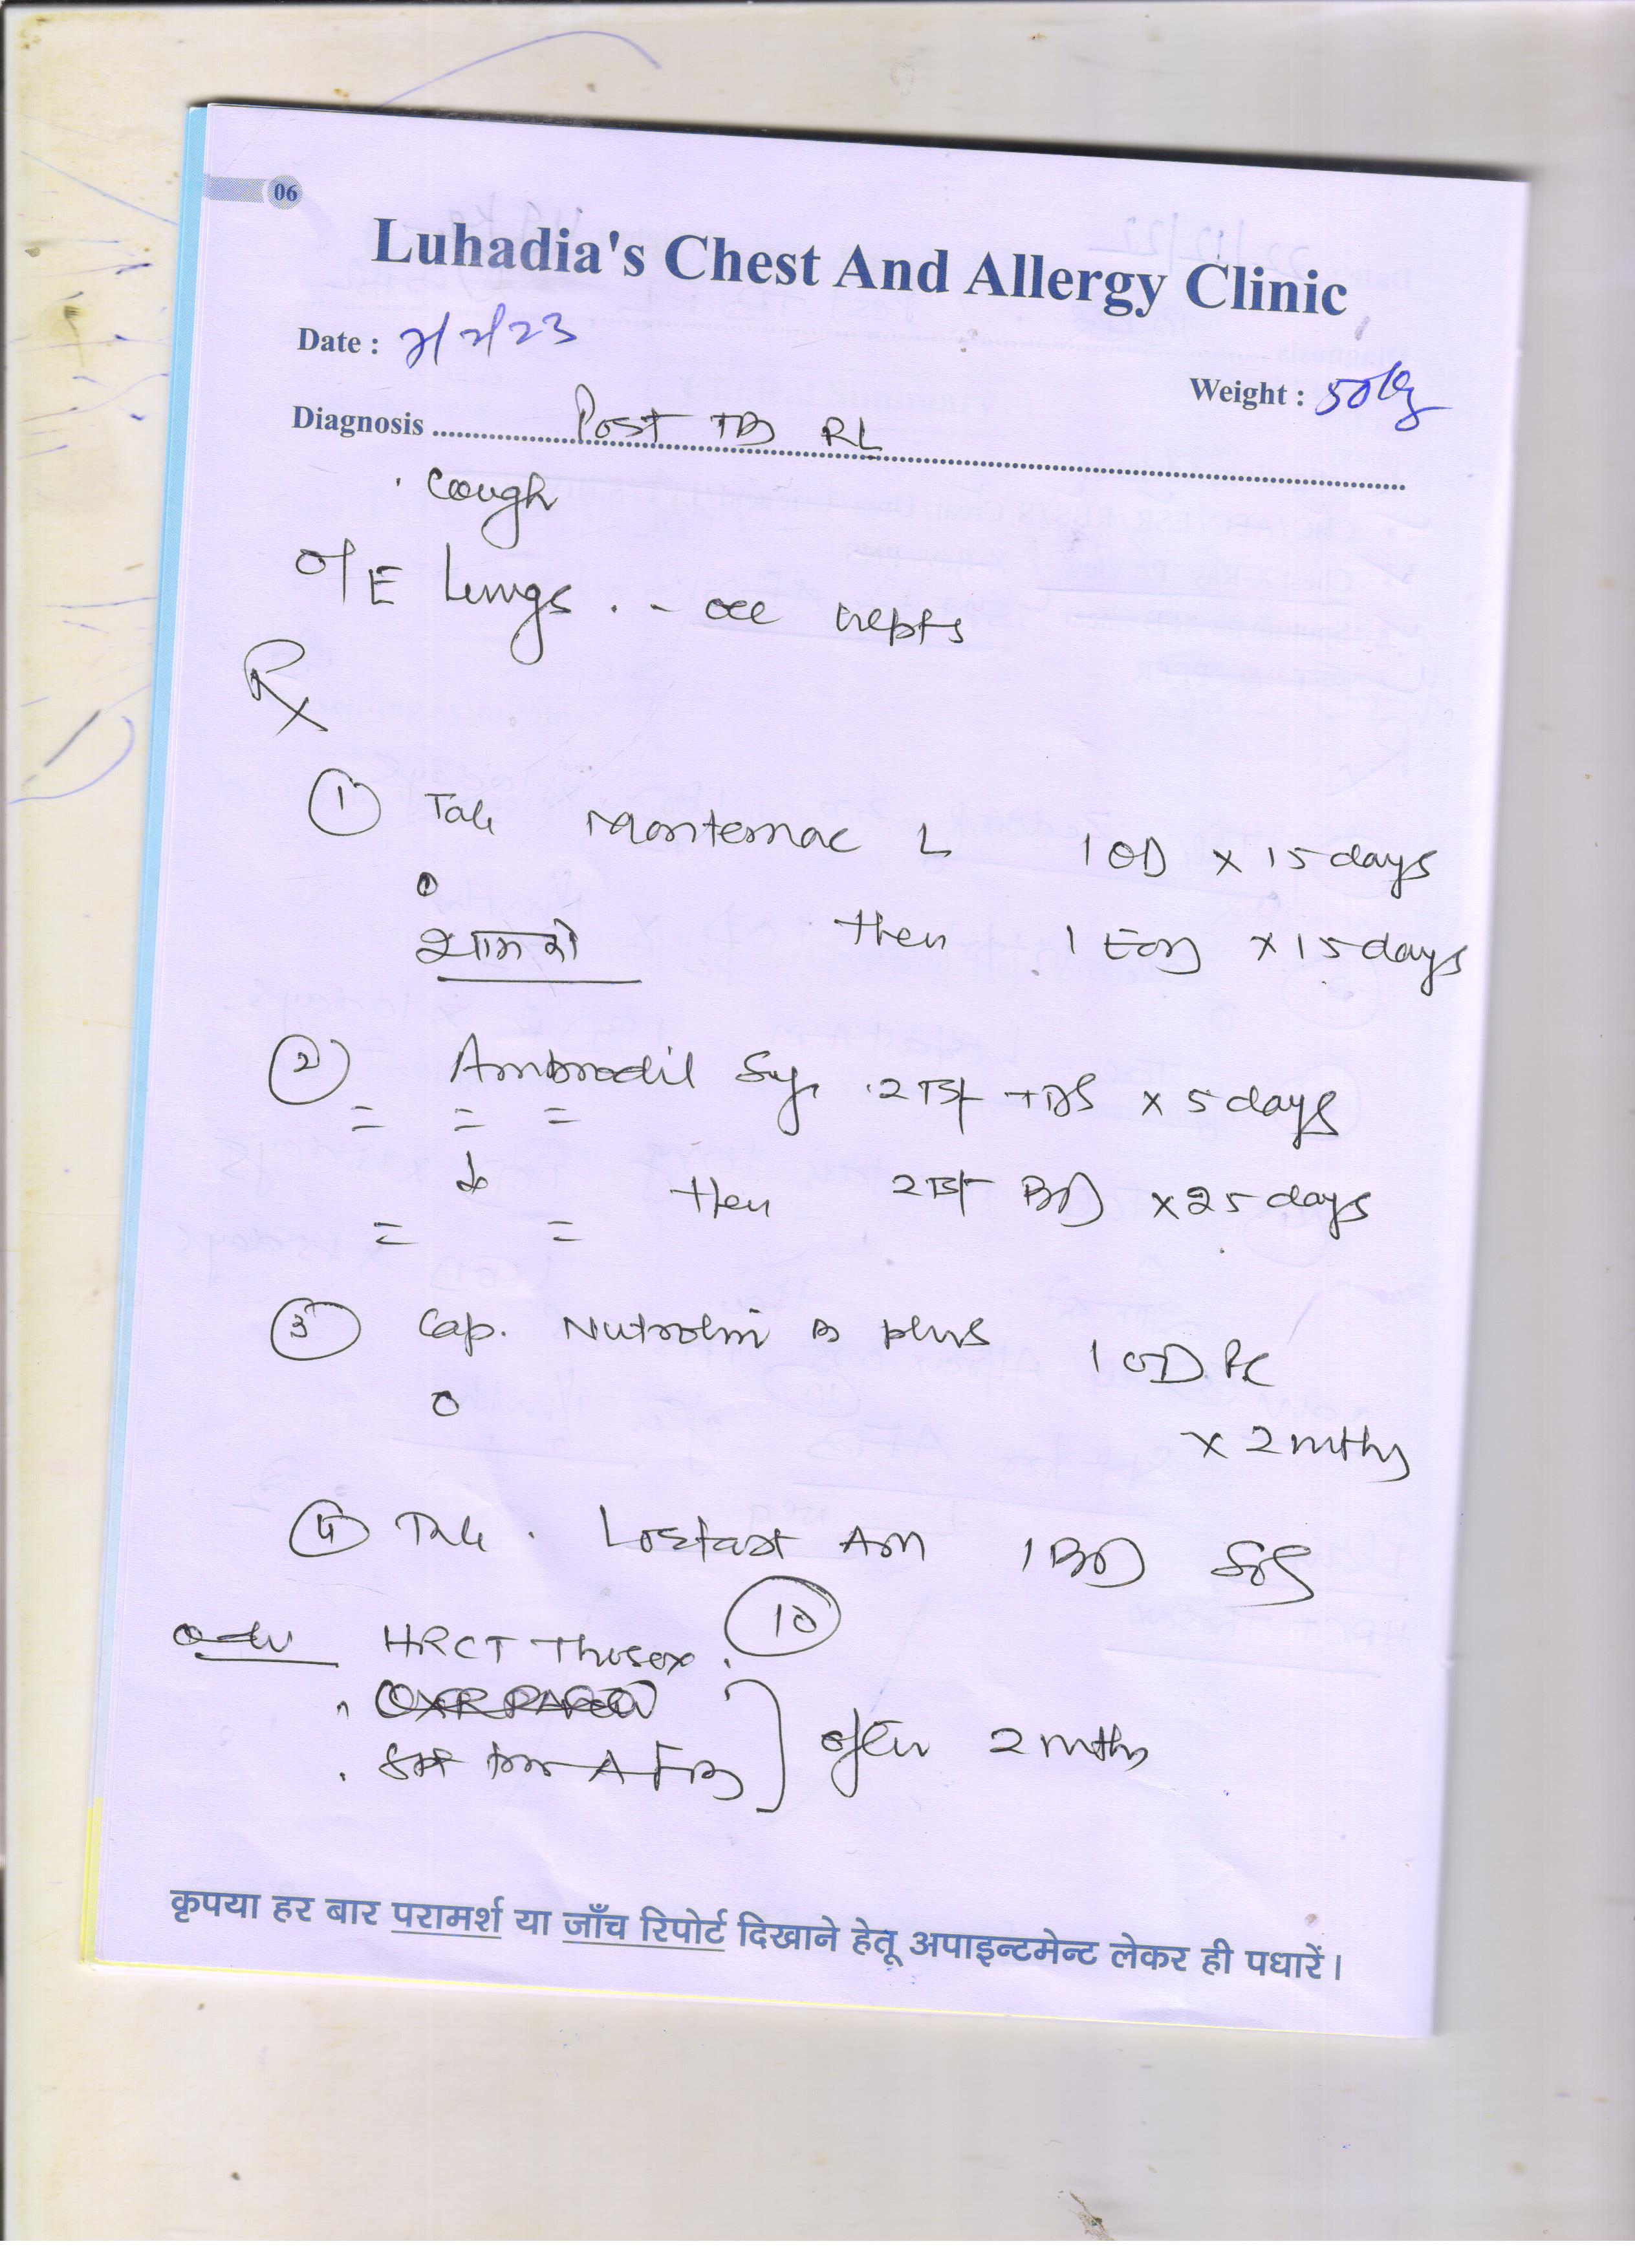 06
Luhadia's Chest And Allergy Clinic
Date : 2/2/23
Weight : 50kg
Diagnosis Post TB RL
· Cough
O/E Lungs . - occ crepts
Rx
① Tab Montemac L 1 OD x 15 days
शाम को then 1 EOD x 15 days
② Ambrodil Syr 2 TSF TDS x 5 days
then 2 TSF BD x 25 days
③ Cap. Nutrolin B plus 1 OD PC
x 2 mths
④ Tab . AM 1 BD SOS
10
Adv HRCT Thorax
CXR PA
for AFB after 2 mths
कृपया हर बार परामर्श या जाँच रिपोर्ट दिखाने हेतू अपाइन्टमेन्ट लेकर ही पधारें।